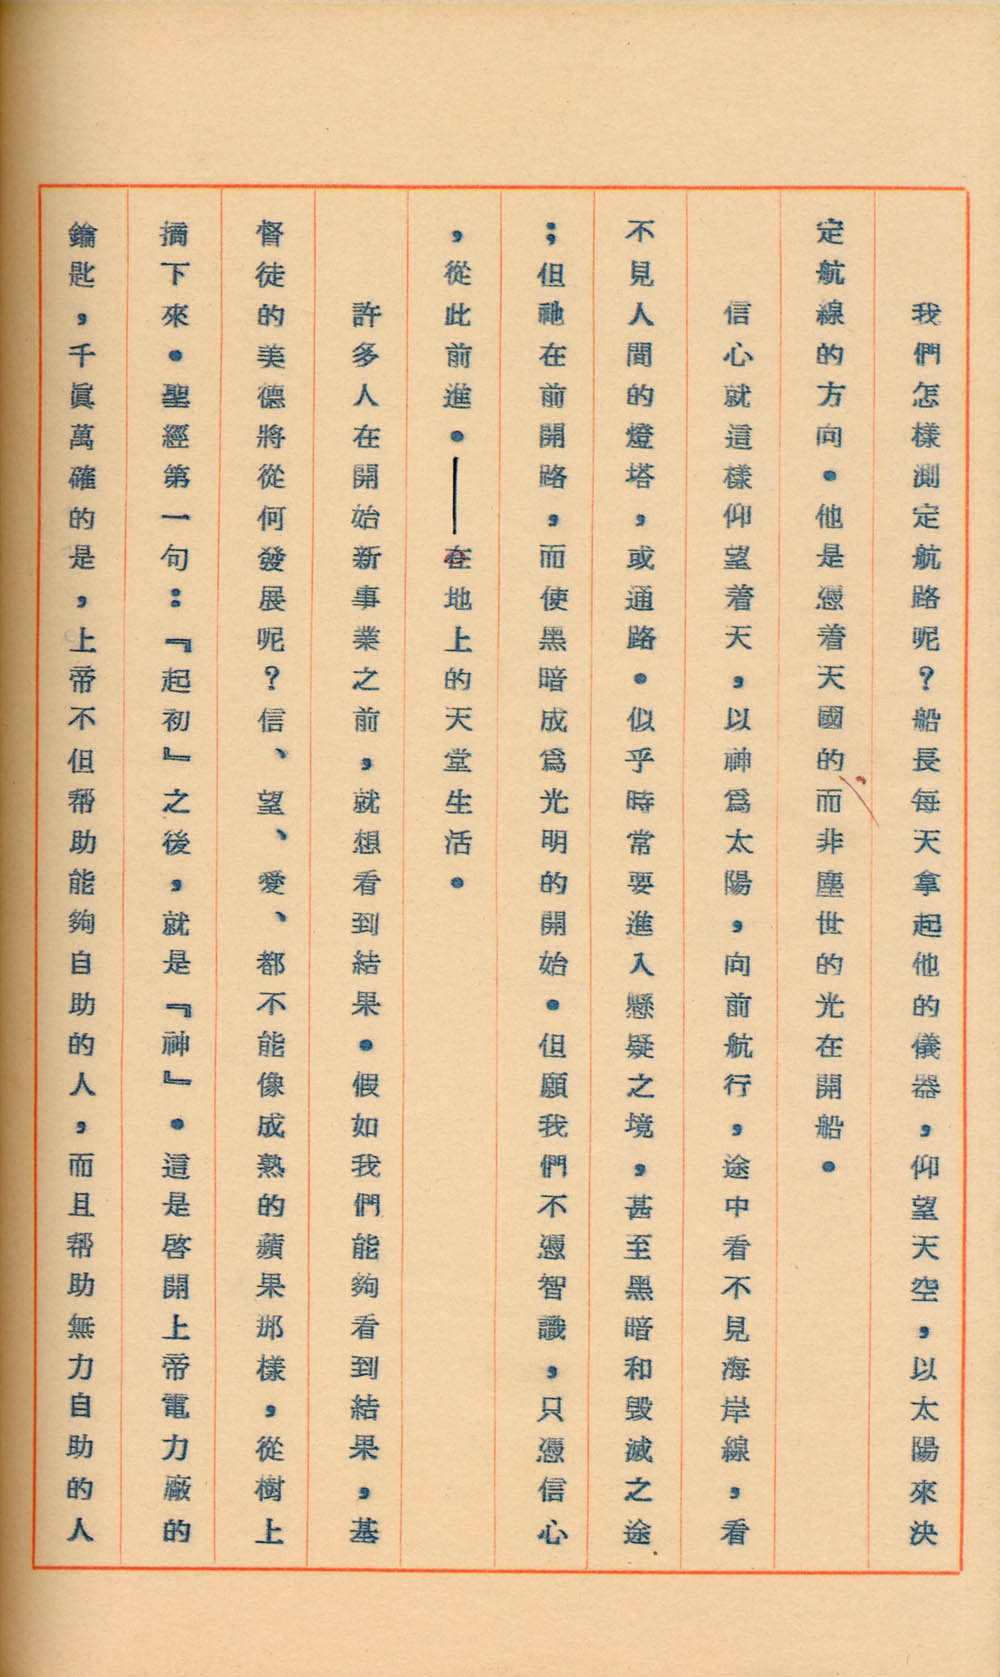 我們怎樣測定航路呢？船長每天拿起他的儀器，仰望天空，以太陽來決
定航線的方向。他是憑着天國的而非塵世的光在開船。
信心就這樣仰望着天，以神爲太陽，向前航行，途中看不見海岸線，看
不見人間的燈塔，或通路。似乎時常要進入懸疑之境，甚至黑暗和毀滅之途
；但祂在前開路，而使黑暗成爲光明的開始。但願我們不憑智識，只憑信心
，從此前進。——在地上的天堂生活。
許多人在開始新事業之前，就想看到結果。假如我們能夠看到結果，基
督徒的美德將從何發展呢？信、望、愛、都不能像成熟的蘋果那樣，從樹上
摘下來。聖經第一句：『起初』之後，就是『神』。這是啓開上帝電力廠的
鑰匙，千眞萬確的是，上帝不但帮助能夠自助的人，而且帮助無力自助的人